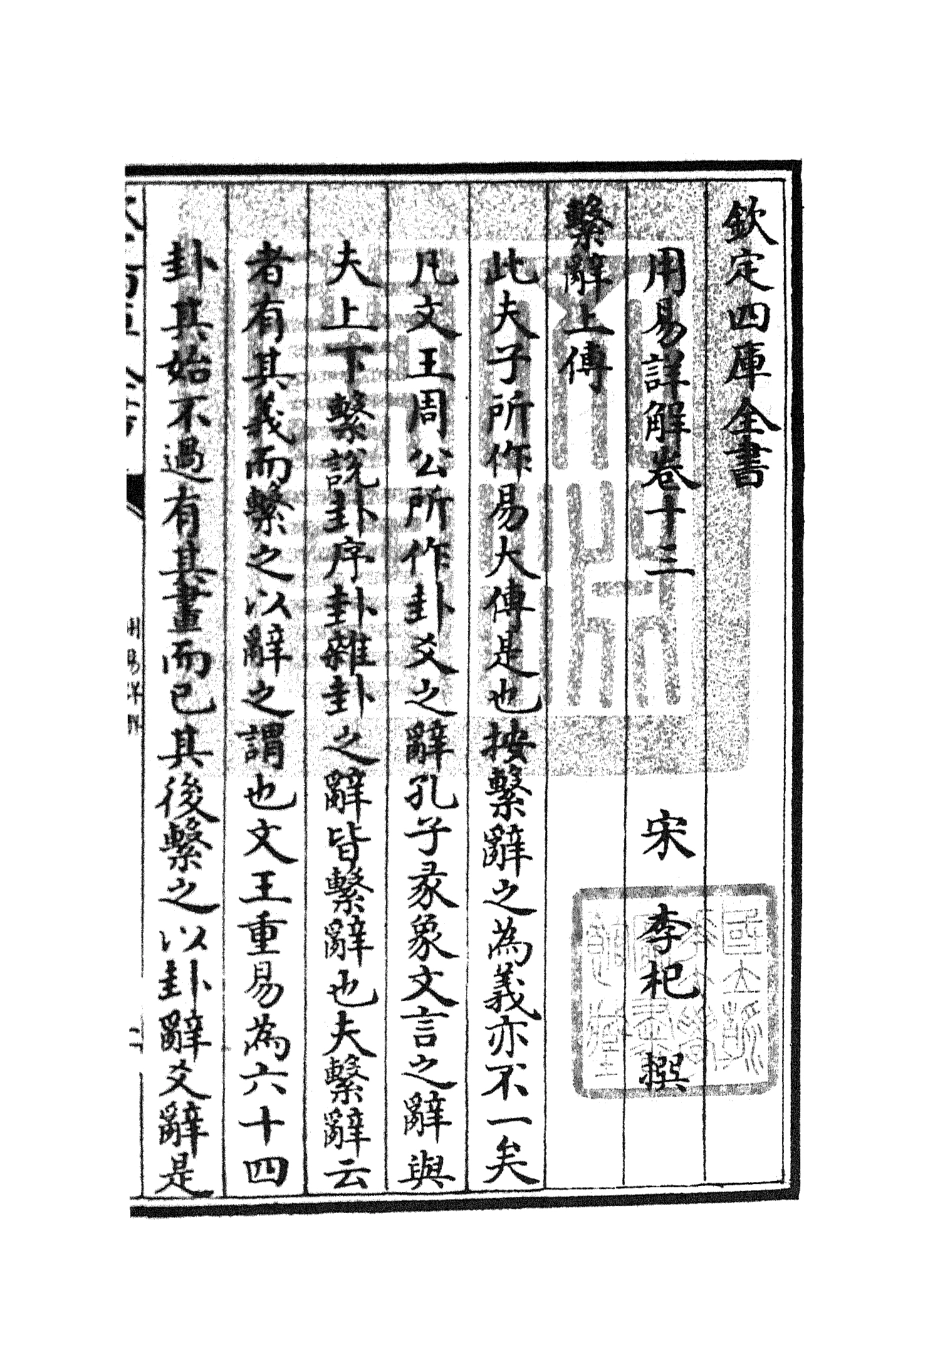 欽定四庫全書
用易詳解卷十三
宋 李杞 撰
繫辭上傳
此夫子所作易大傳是也按繫辭之為義亦不一矣
凡文王周公所作卦爻之辭孔子彖象文言之辭與
夫上下繫說卦序卦雜卦之辭皆繫辭也夫繫辭云
者有其義而繫之以辭之謂也文王重易為六十四
卦其始不過有其畫而已其後繫之以卦辭爻辭是